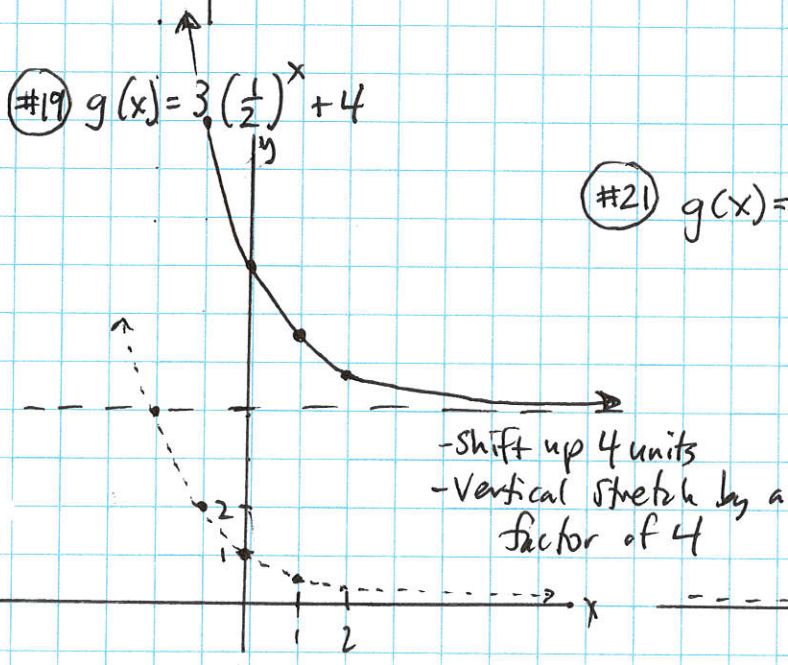 #19 g(x) = 3(1/2)^x + 4
y
#21 g(x) =
-Shift up 4 units
-Vertical stretch by a
factor of 4
2
1
x
1
2